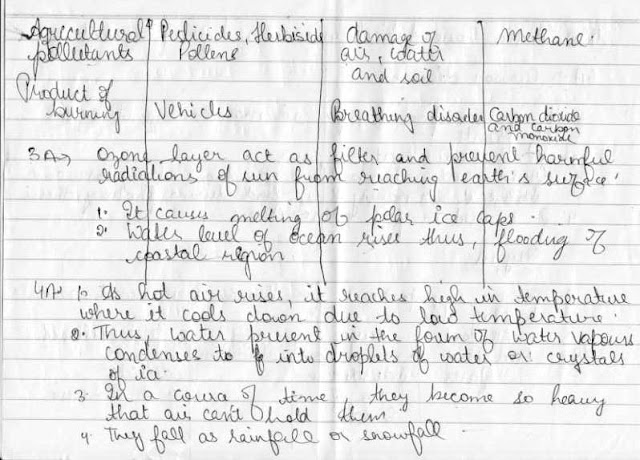 Agricultural pollutants | Pesticides, Herbiside Pollens | damage of air, water and soil | Methane.
Product of burning | Vehicles | Breathing disorder | Carbon dioxide and carbon monoxide
3A→ Ozone layer act as filter and prevent harmful
radiations of sun from reaching earth's surface.
1. It causes melting of polar ice caps.
2. Water level of ocean rises thus, flooding of
coastal region
4A→ 1. As hot air rises, it reaches high in temperature
where it cools down due to low temperature.
2. Thus, water present in the form of water vapours
condenses to into droplets of water or crystals
of ice.
3. In a course of time, they become so heavy
that air can't hold them
4. They fall as rainfall or snowfall.